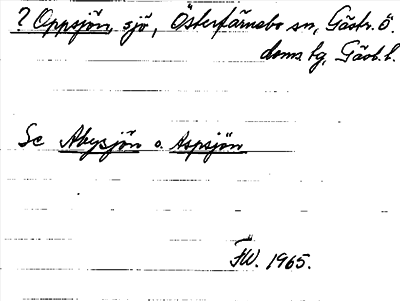 ? Oppsjön, sjö, Österfärnebo sn, Gästr. ö.
doms. hg, Gävl. l.
Se Abysjön o. Aspsjön
FW. 1965.